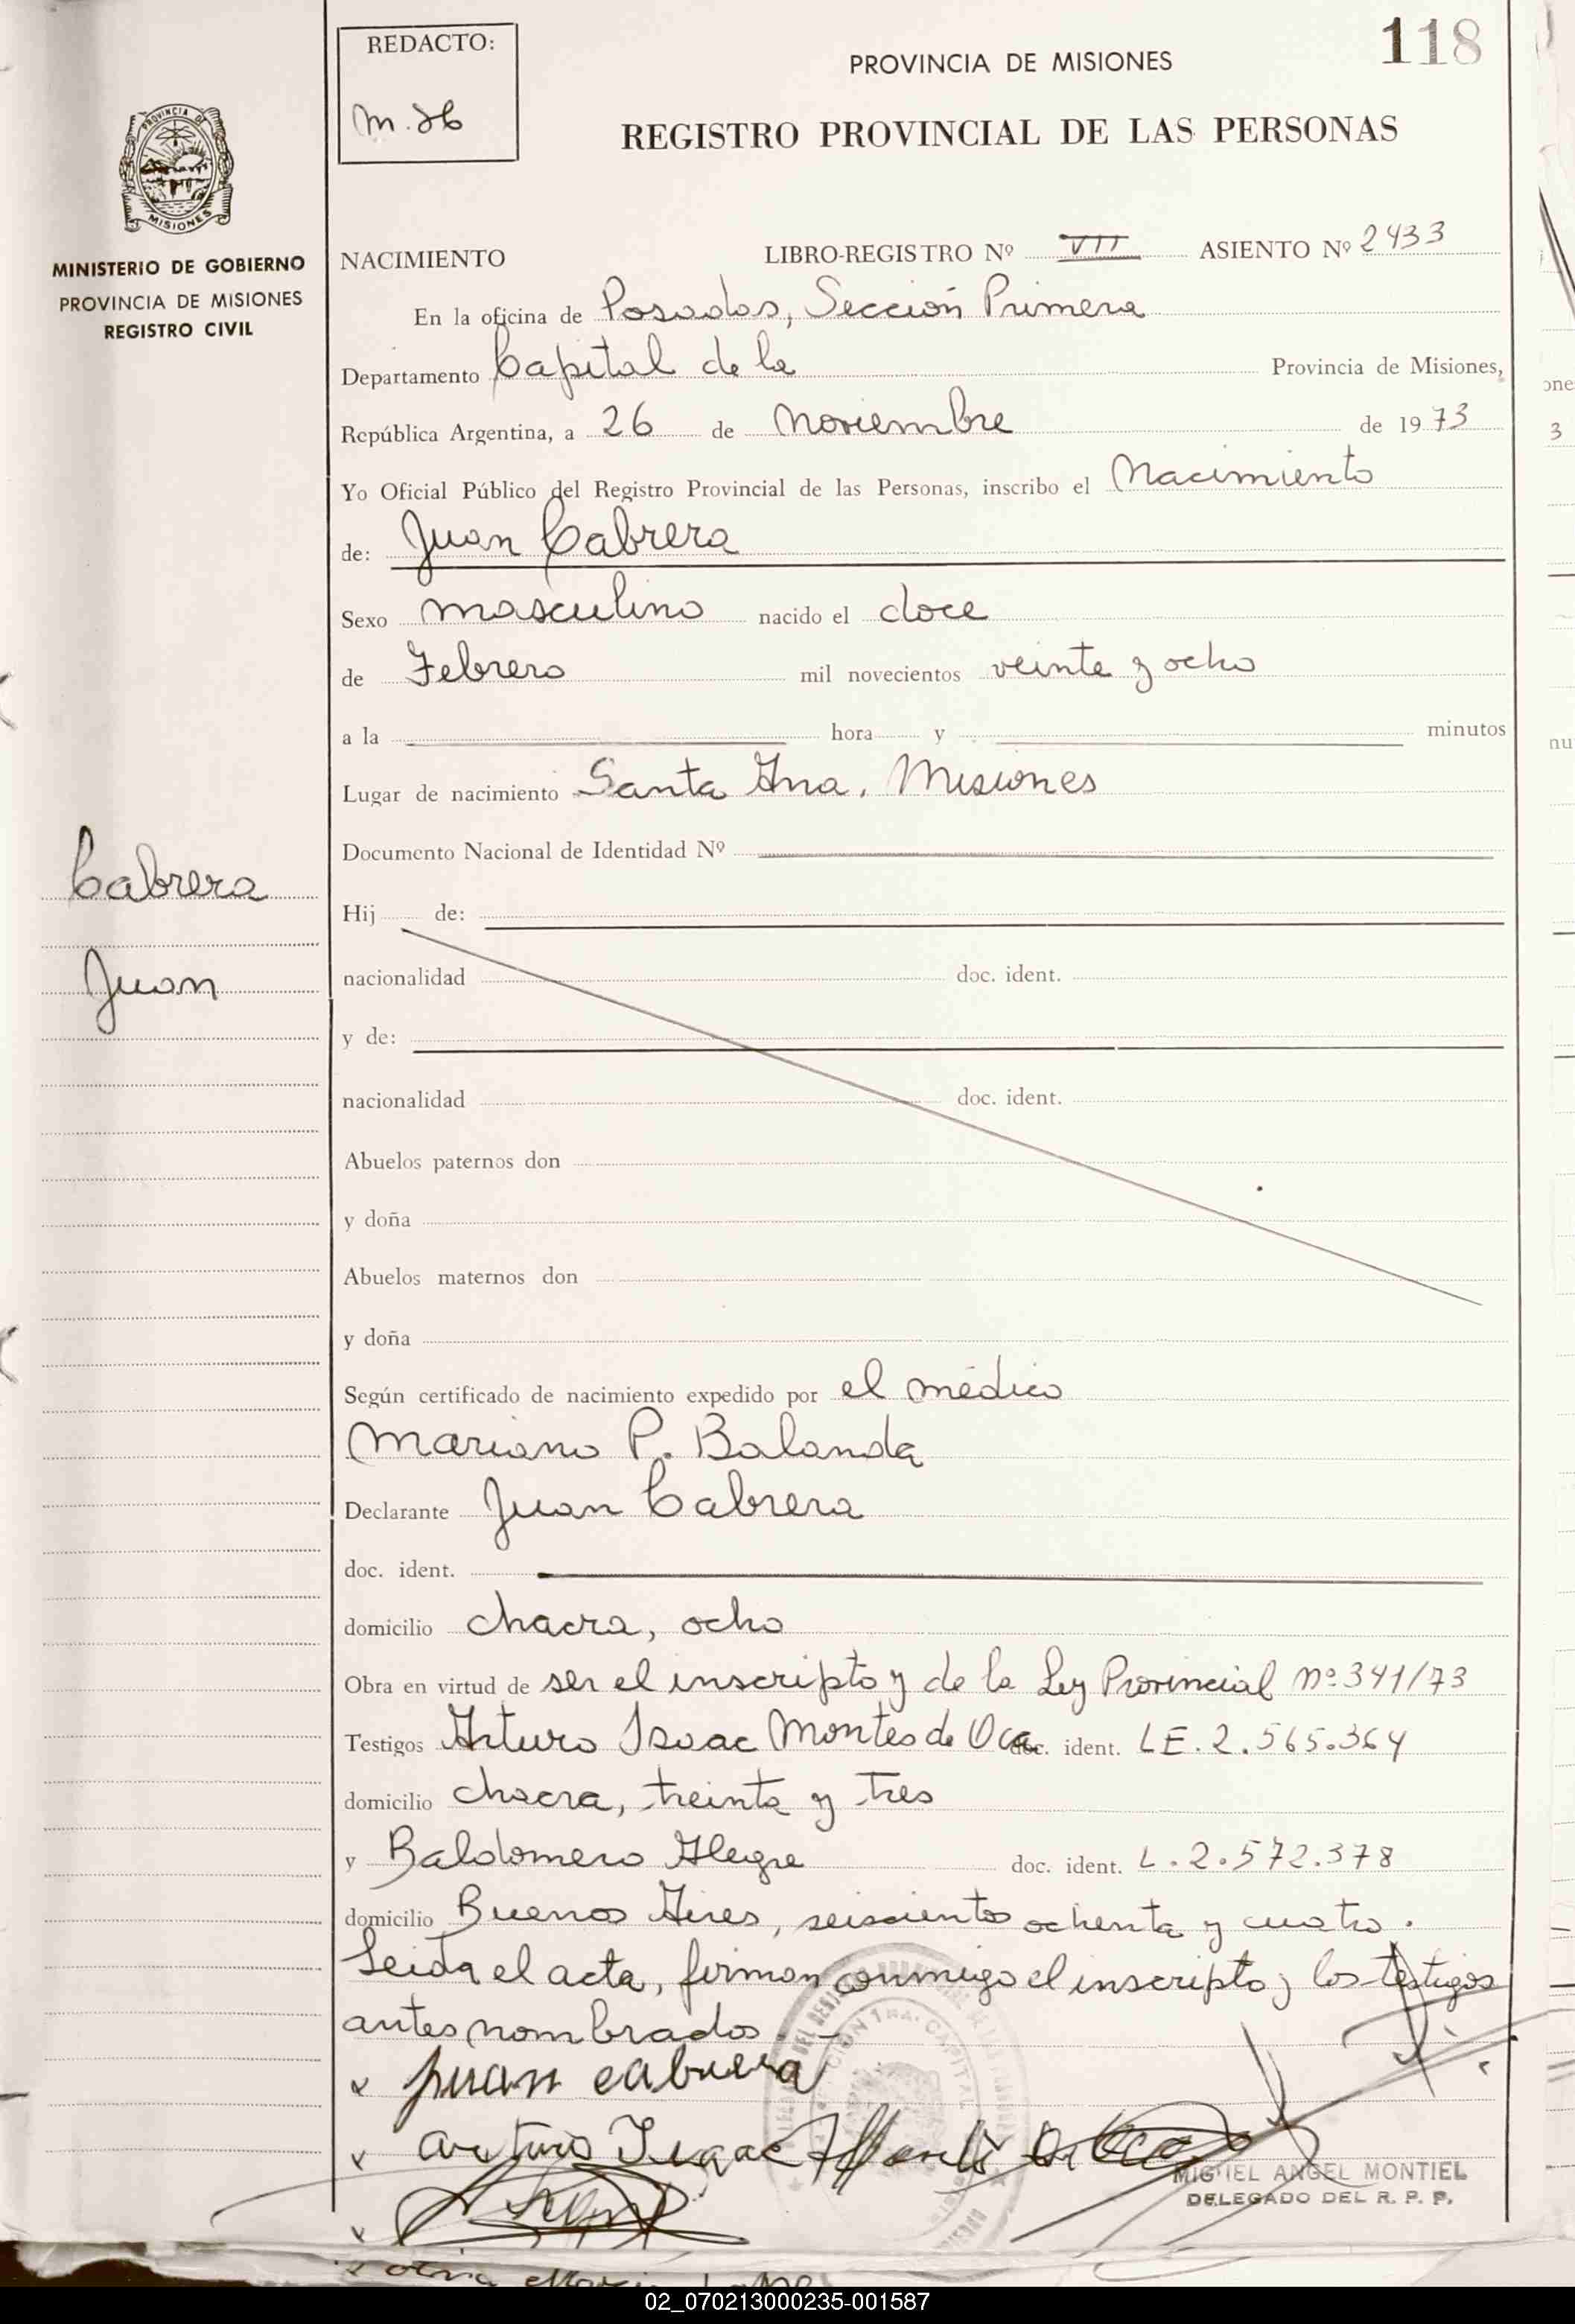 118
REDACTO:
PROVINCIA DE MISIONES
REGISTRO PROVINCIAL DE LAS PERSONAS
PROVINCIA DE
MISIONES
MINISTERIO DE GOBIERNO
PROVINCIA DE MISIONES
REGISTRO CIVIL
NACIMIENTO LIBRO-REGISTRO Nº VII ASIENTO Nº 2433
En la oficina de Posadas, Sección Primera
Departamento Capital de la Provincia de Misiones,
República Argentina, a 26 de Noviembre de 1973
Yo Oficial Público del Registro Provincial de las Personas, inscribo el Nacimiento
de: Juan Cabrera
Sexo masculino nacido el doce
de Febrero mil novecientos veinte y ocho
a la hora y minutos
Lugar de nacimiento Santa Ana, Misiones
Documento Nacional de Identidad Nº
Cabrera
Juan
Hij de:
nacionalidad doc. ident.
y de:
nacionalidad doc. ident.
Abuelos paternos don
y doña
Abuelos maternos don
y doña
Según certificado de nacimiento expedido por el médico
Mariano P. Balanda
Declarante Juan Cabrera
doc. ident.
domicilio chacra, ocho
Obra en virtud de ser el inscripto y de la Ley Provincial nº 341/73
Testigos Arturo Isaac Montes de Oca doc. ident. LE. 2.565.364
domicilio chacra, treinta y tres
y Baldomero Alegre doc. ident. L. 2.572.378
domicilio Buenos Aires, seiscientos ochenta y cuatro.
Leida el acta, firman conmigo el inscripto y los testigos
antes nombrados.-
Juan cabrera
arturo Isaac Montes de Oca
MIGUEL ANGEL MONTIEL
DELEGADO DEL R. P. P.
02_070213000235-001587